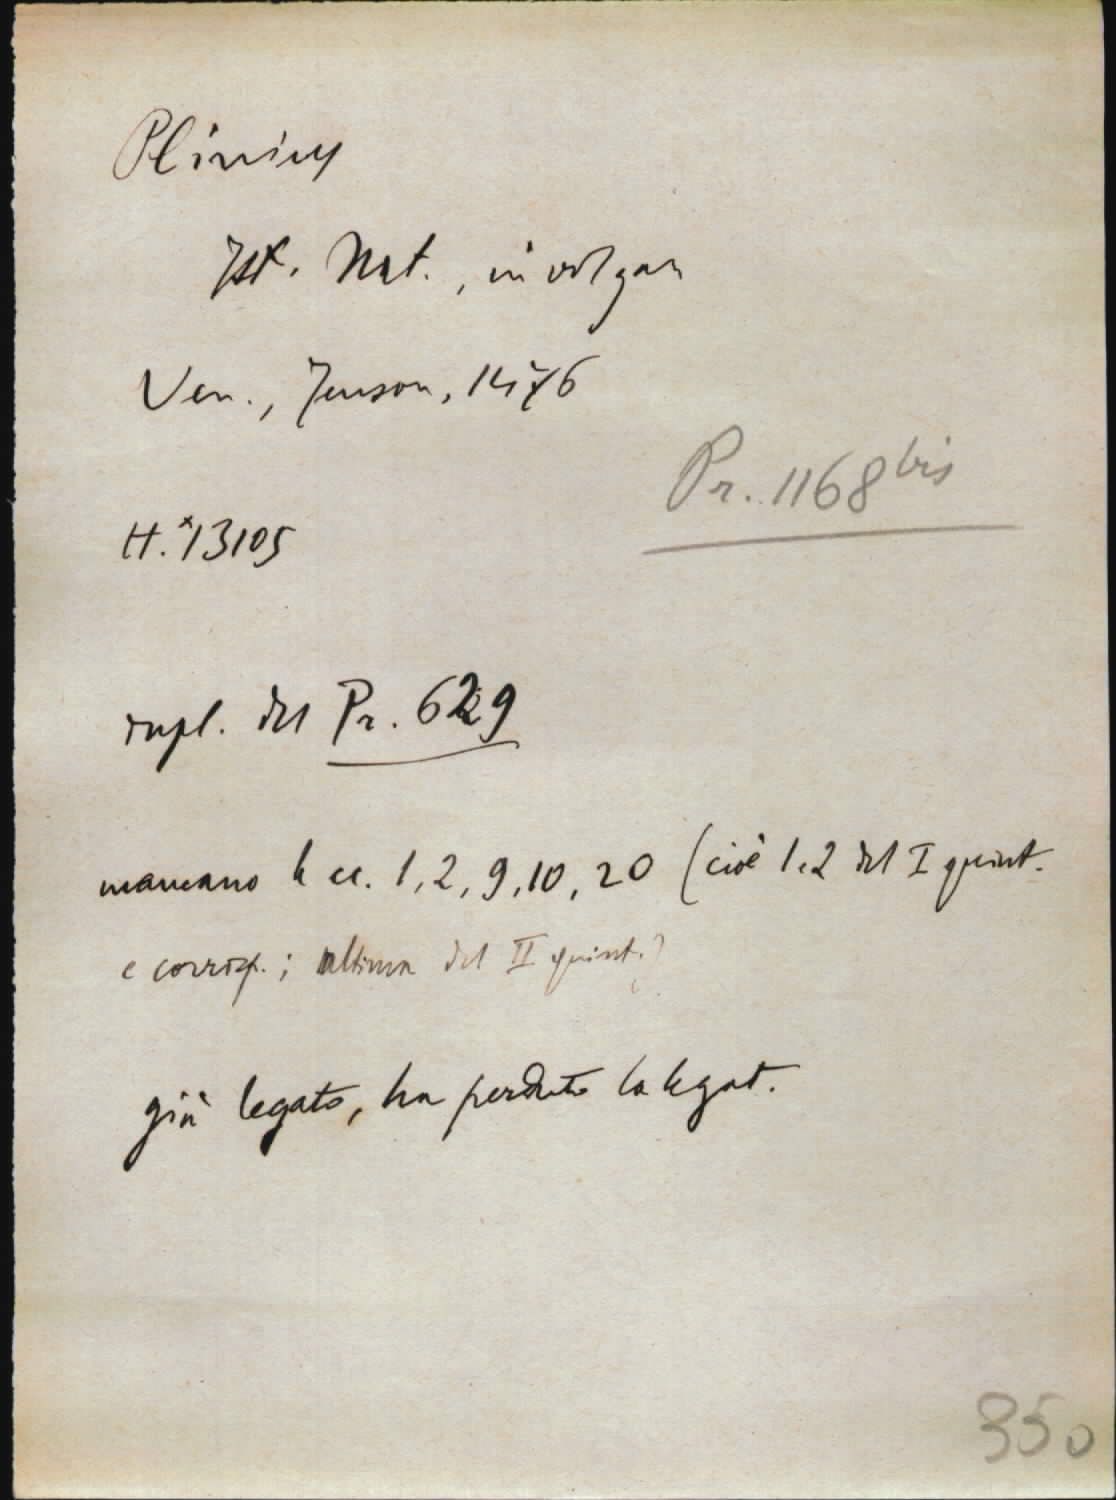 Plinius
Ist. Nat., in volgare
Ven., Jenson, 1476
Pr. 1168 bis
H. *13105
dupl. del Pr. 629
mancano le cc. 1, 2, 9, 10, 20 (cioè 1.2 del I quint.
e corrisp.; ultima del II quint.)
già legato, ha perduto la legat.
350